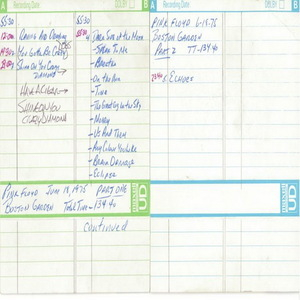 A Recording Date
B
5530
5530
12:00 Raving And Drooling
You Gotta Be Crazy
Shine On You Crazy
Diamond →
Have A Cigar →
Shine On You
Crazy Diamond
Dark Side of the Moon
- Speak To Me
- Breathe
- On the Run
- Time
- The Great Gig in the Sky
- Money
- Us And Them
- Any Colour You Like
- Brain Damage
- Eclipse
Pink Floyd June 18, 1975 Part One
Boston Garden Total Time - 134:40
UD
continued
A Recording Date
DOLBY B
Pink Floyd 6-18-75
Boston Garden
Part 2 TT-134:40
Echoes
UD